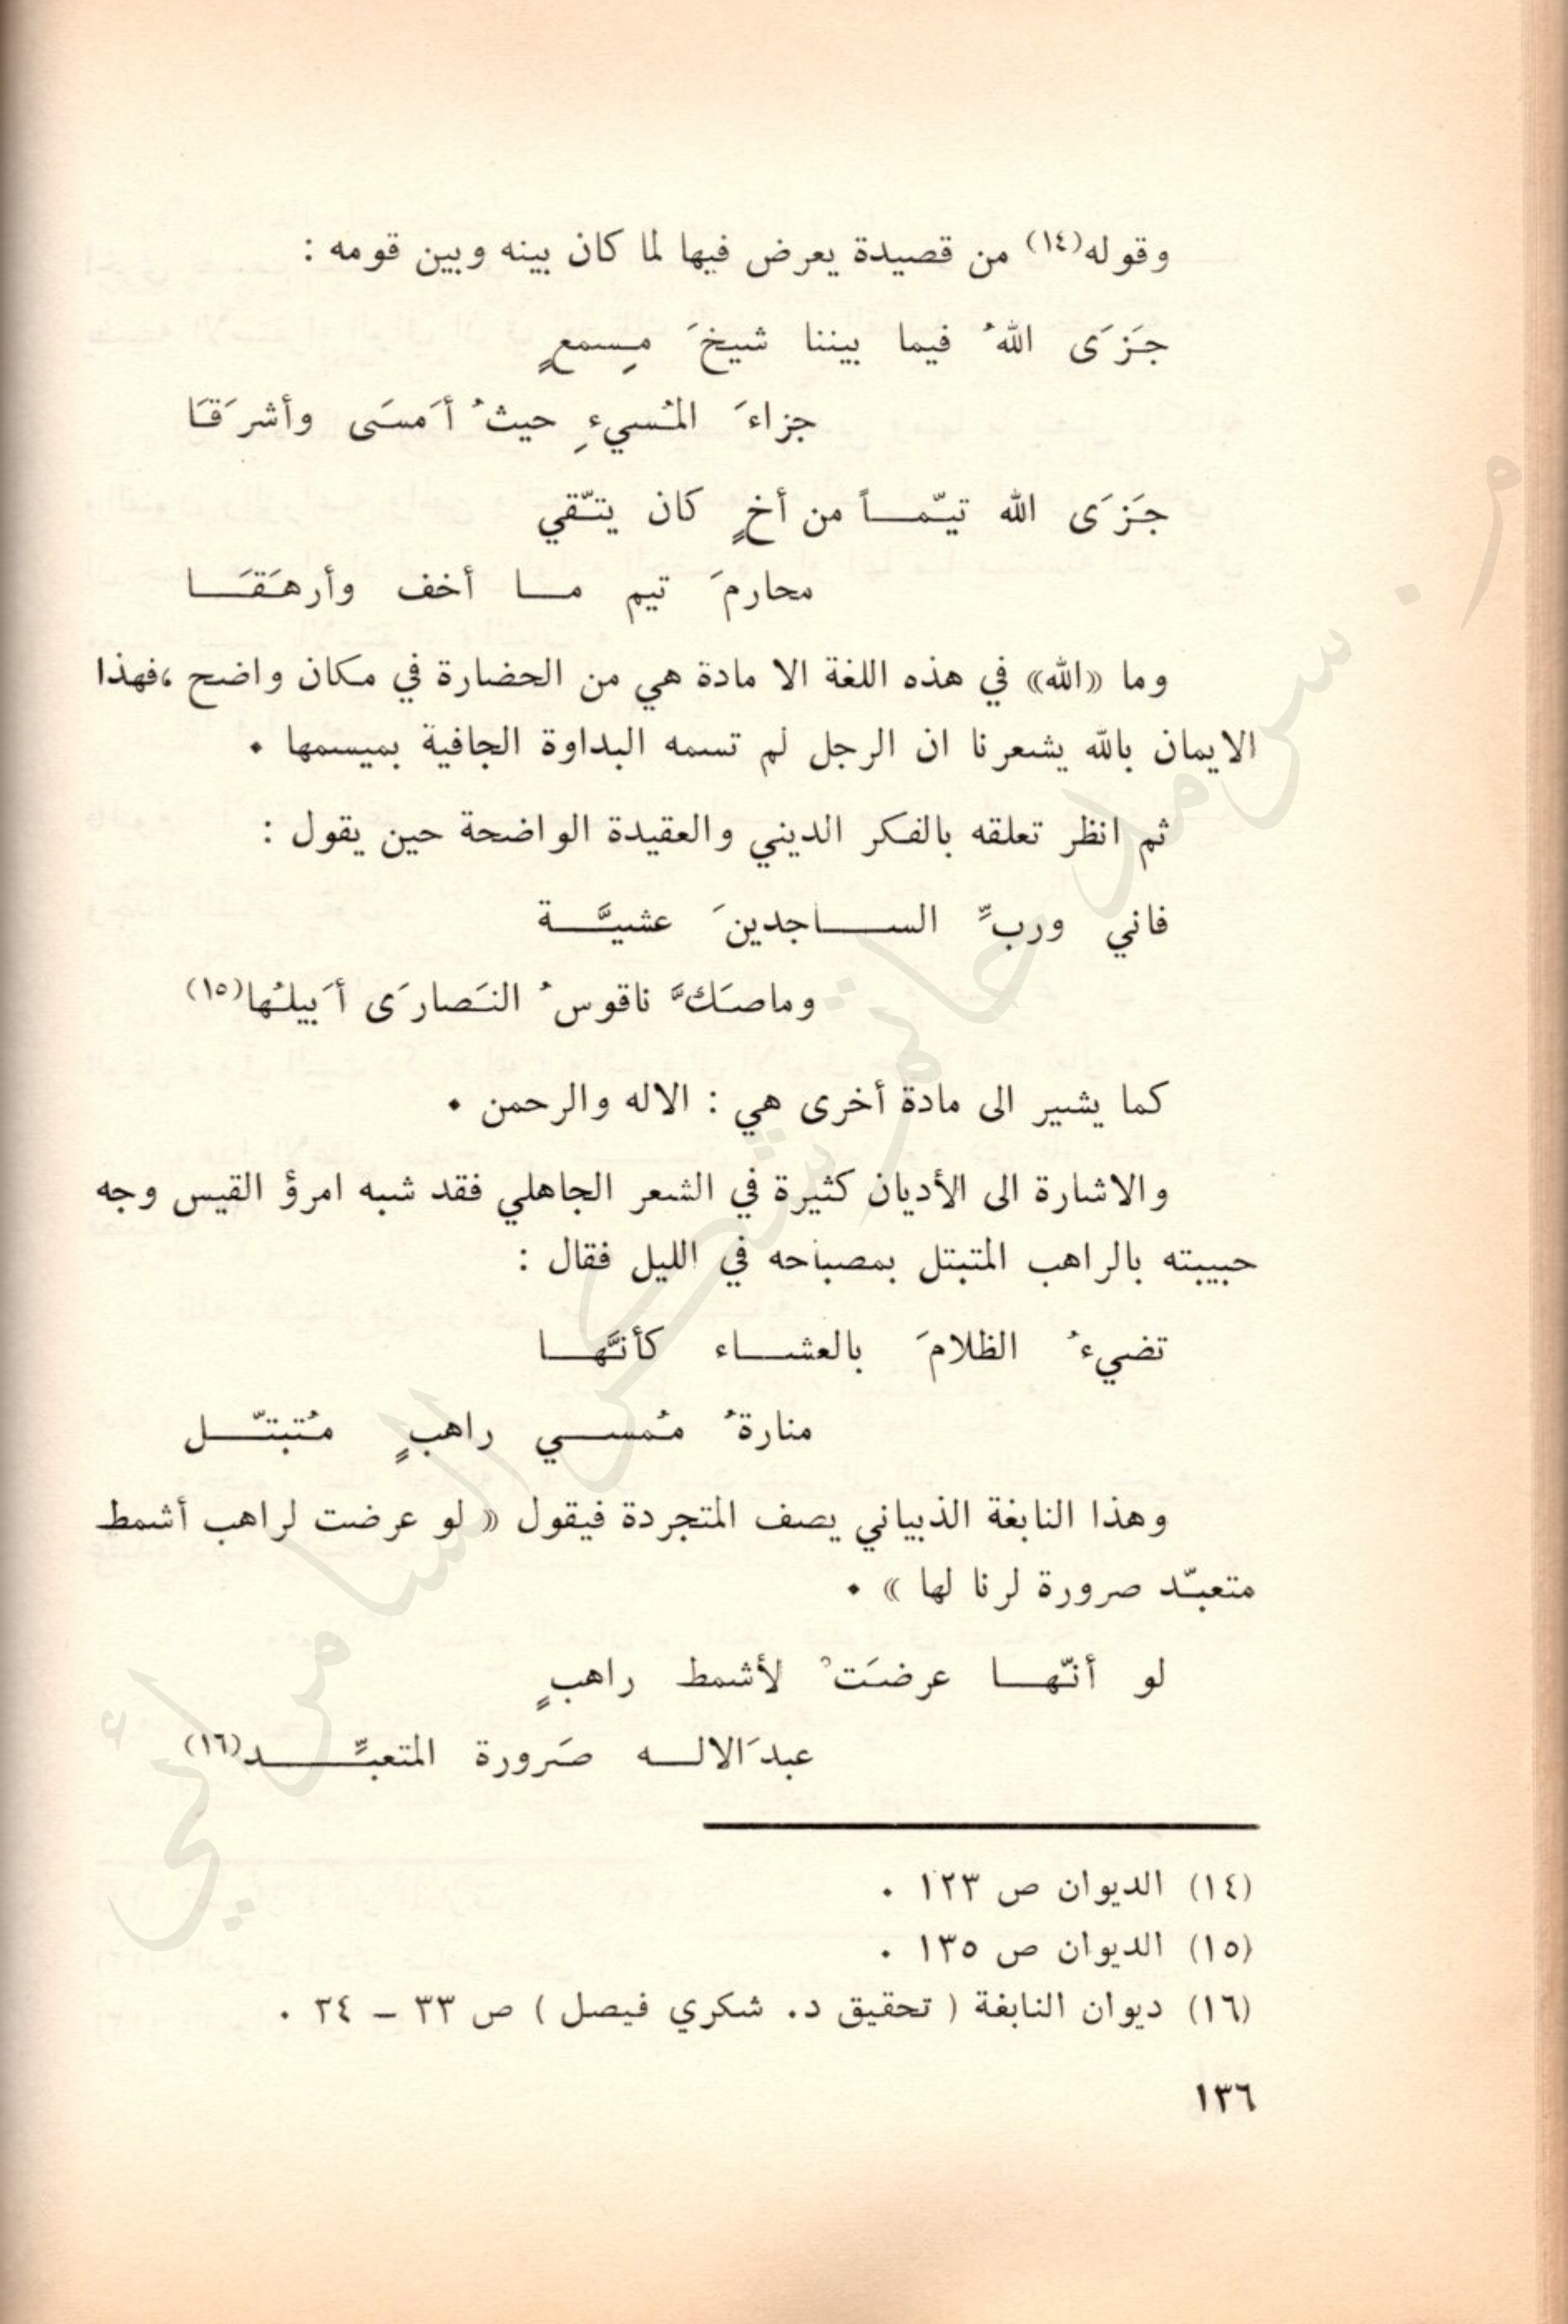 وقوله(١٤) من قصيدة يعرض فيها لما كان بينه وبين قومه :
جَزَى اللهُ فيما بيننا شيخَ مِسمعٍ
جزاءَ المُسيءِ حيثُ أَمسَى وأشرَقَا
جَزَى الله تيّمـــاً من أخٍ كان يتّقي
محارمَ تيم مــا أخف وأرهَقَــا
وما «الله» في هذه اللغة الا مادة هي من الحضارة في مكان واضح ،فهذا
الايمان بالله يشعرنا ان الرجل لم تسمه البداوة الجافية بميسمها .
ثم انظر تعلقه بالفكر الديني والعقيدة الواضحة حين يقول :
فاني وربِّ الســـاجدينَ عشيَّــة
وماصَكَّ ناقوسُ النَصارَى أَبيلُها(١٥)
كما يشير الى مادة أخرى هي : الاله والرحمن .
والاشارة الى الأديان كثيرة في الشعر الجاهلي فقد شبه امرؤ القيس وجه
حبيبته بالراهب المتبتل بمصباحه في الليل فقال :
تضيءُ الظلامَ بالعشــاء كأنَّهــا
منارةُ مُمســي راهبٍ مُتبتّــل
وهذا النابغة الذبياني يصف المتجردة فيقول « لو عرضت لراهب أشمط
متعبّد صرورة لرنا لها » .
لو أنّهــا عرضَتْ لأشمط راهبٍ
عبدَالالــه صَرورة المتعبِّـــد(١٦)
(١٤) الديوان ص ١٢٣ .
(١٥) الديوان ص ١٣٥ .
(١٦) ديوان النابغة ( تحقيق د. شكري فيصل ) ص ٣٣ – ٣٤ .
١٣٦
من سرمد حاتم شكر السامرائي